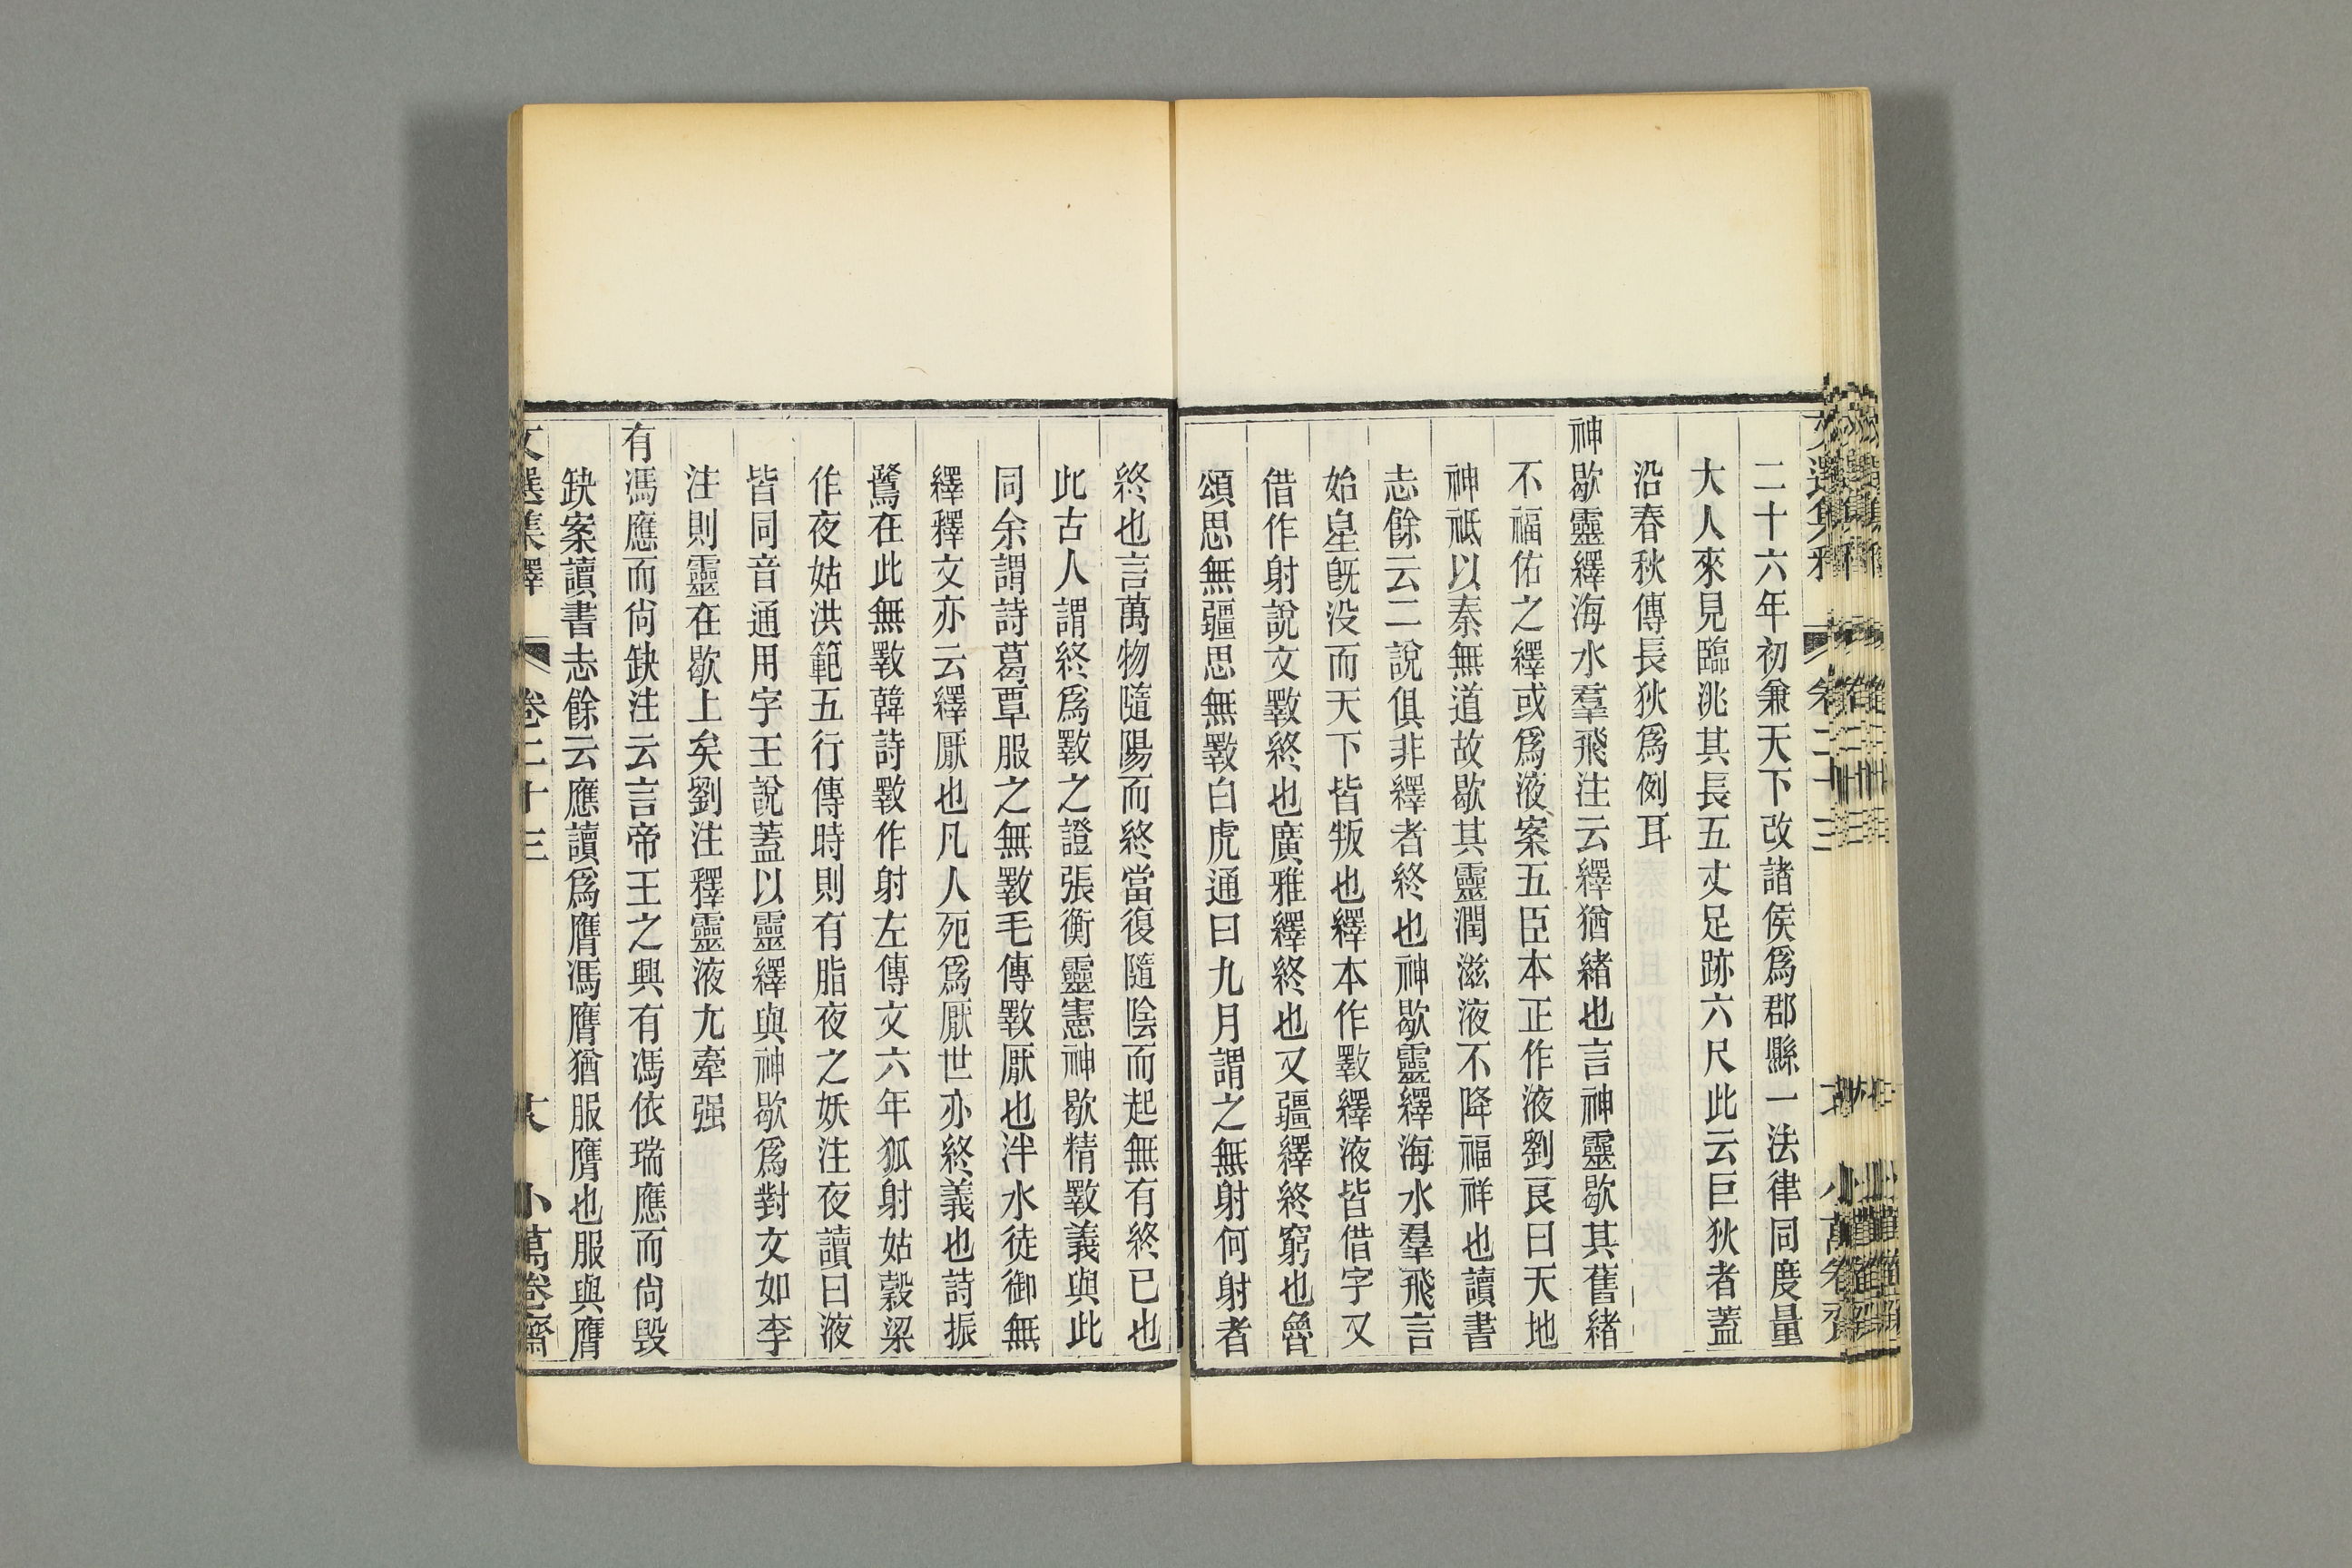 二十六年初兼天下改諸侯爲郡縣一法律同度量
大人來見臨洮其長五丈足跡六尺此云巨狄者蓋
沿春秋傳長狄爲例耳
神歇靈繹海水羣飛注云繹猶緒也言神靈歇其舊緒
不福佑之繹或爲液案五臣本正作液劉良曰天地
神祗以秦無道故歇其靈潤滋液不降福祥也讀書
志餘云二說俱非繹者終也神歇靈繹海水羣飛言
始皇旣没而天下皆叛也繹本作斁繹液皆借字又
借作射說文斁終也廣雅繹終也又疆繹終窮也魯
頌思無疆思無斁白虎通曰九月謂之無射何射者
終也言萬物隨陽而終當復隨陰而起無有終已也
此古人謂終爲斁之證張衡靈憲神歇精斁義與此
同余謂詩葛覃服之無斁毛傳斁厭也泮水徒御無
繹釋文亦云繹厭也凡人死爲厭世亦終義也詩振
鷺在此無斁韓詩斁作射左傳文六年狐射姑穀梁
作夜姑洪範五行傳時則有脂夜之妖注夜讀曰液
皆同音通用字王說蓋以靈繹與神歇爲對文如李
注則靈在歇上矣劉注釋靈液尢牽强
有馮應而尙缺注云言帝王之興有馮依瑞應而尙毁
缺案讀書志餘云應讀爲膺馮膺猶服膺也服與膺
文選集釋 卷二十三 小萬卷齋